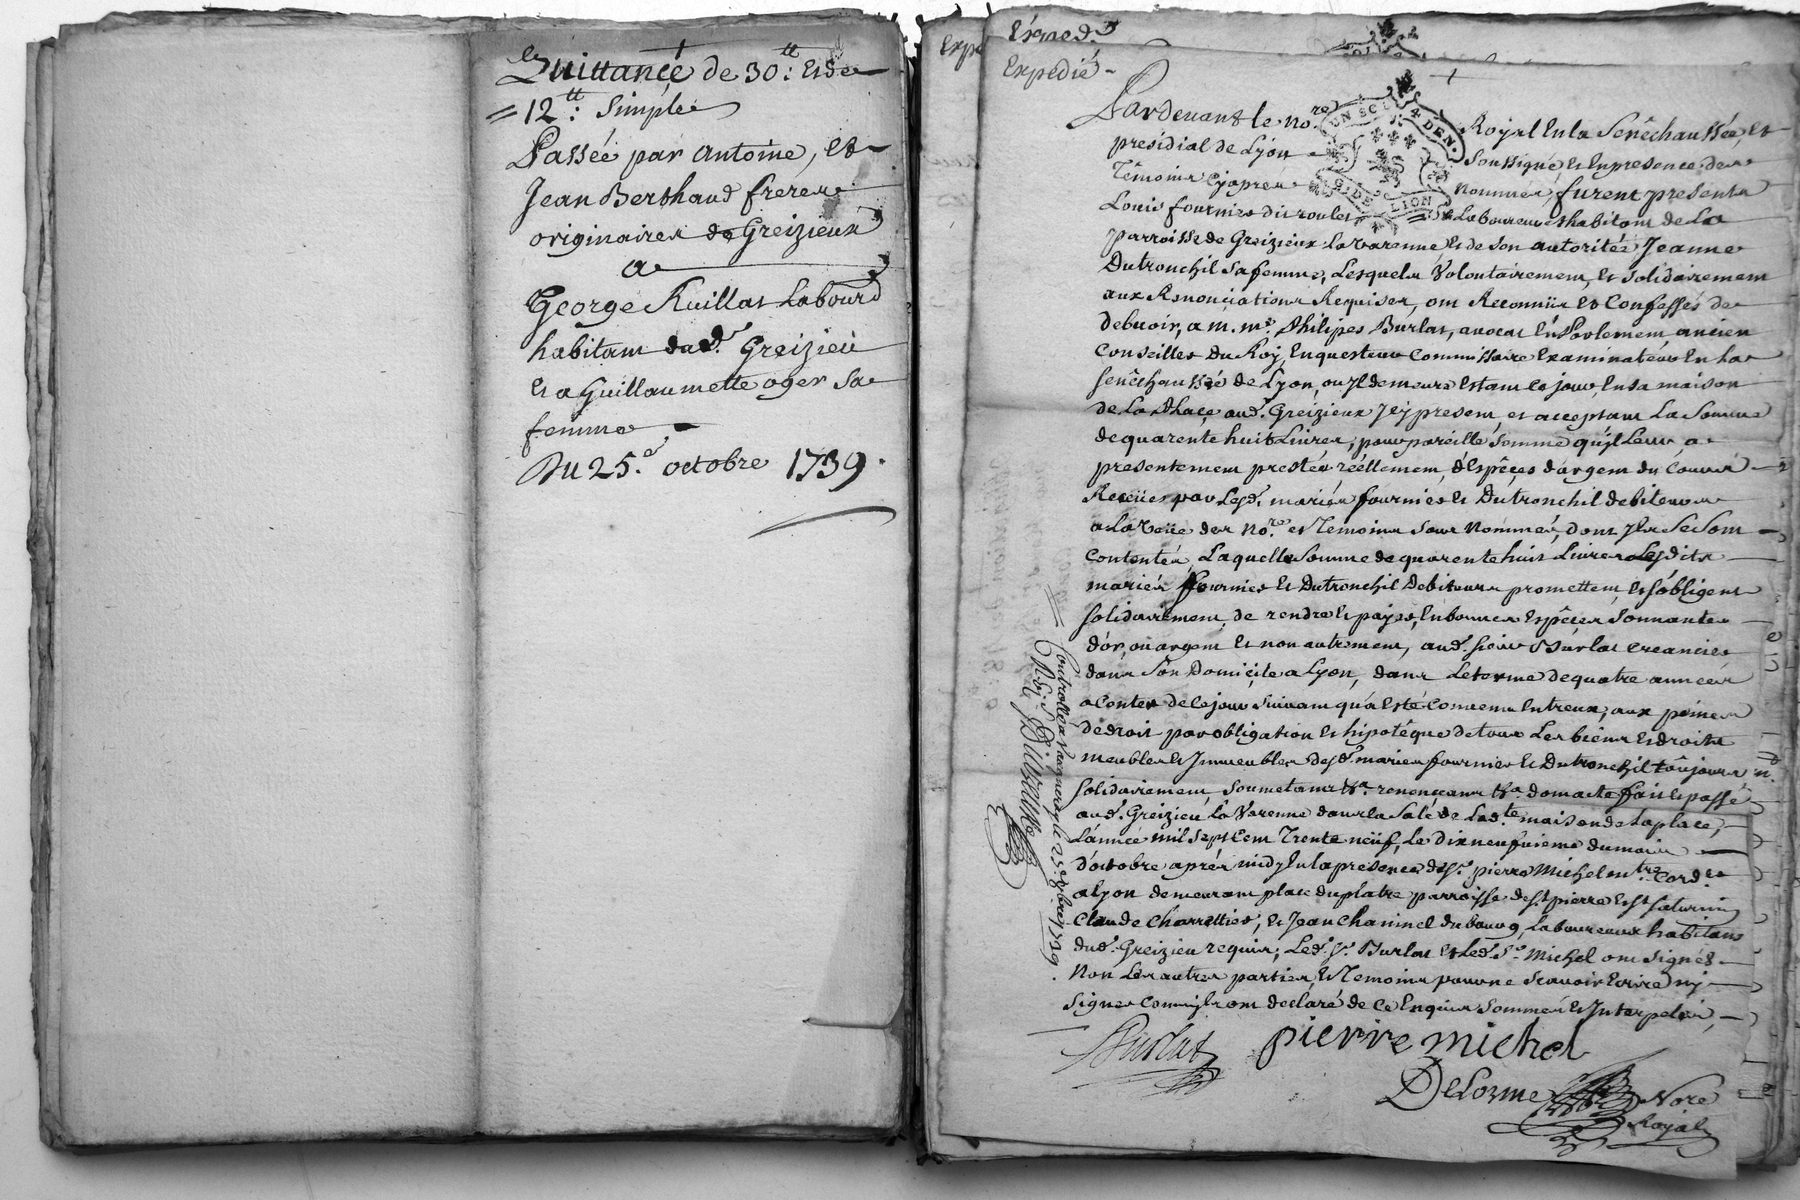 Quittance de 30.tt Et de
12.tt Simple
Passée par Antoine, Et
Jean Berthaud freres
originaires de Greizieux
a
George Ruillat Labourd
habitant dud. Greizieu
Et a Guillaumette oger Sa
femme
Du 25.e octobre 1739.
Expedié
Expedié
Pardevant le no.re Royal En la Senêchaussée, et
UN SOL 4 DEN.
G. DE LION
presidial de Lyon Soussigné et En presence des
Témoins cy apres nommés, furent presents
Louis fournier dit roulet Laboureur habitant de La
parroisse de Greizieux la varenne et de Son autorité Jeanne
Dutronchil Sa femme, Lesquels Volontairement, et Solidairement
aux Renonciations Requises, ont Reconnus et Confessés de
debvoir, a m. me. Philipes Burlat, avocat En Parlement ancien
Conseiller du Roy Enquesteur Commissaire Examinateur En La
Senêchaussée de Lyon, ou Jl demeure Estant ce jour En sa maison
de La Place aud. Greizieux Jcy present, et acceptant La Somme
de quarente huit Livres, pour pareille Somme qu'il Leur a
presentement prestée réellement, d'Espêces d'argent du Cours
Receües par Lesd. mariés fournier et Dutronchil debiteurs
a La Veüe des No.re et Temoins Sous Nommés, dont Jls Se Sont
Contentés, Laquelle Somme de quarente huit Livres Lesdits
mariés fournier et Dutronchil Debiteurs promettent et S'obligent
Solidairement, de rendre et payer, En bonnes Espêces Sonnantes
d'or, ou argent Et non autrement, aud. Sieur Burlat Creancier
dans Son Domicile a Lyon, dans Le terme de quatre années
a Conter de Ce jour Suivant qu'a Esté Convenu Entreux, aux peines
de droit par obligation Et hipotêque de tous Les biens Et droits
meubles Et Jmmeubles Desd. mariés fournier et Dutronchil toûjours
Solidairement, Soumettants &a. renonçants &a. dont acte fait Et passé
aud. Greizieu La Varenne dans la Sale de Lad.te maison de La place,
L'année mil Sept Cent Trente neüf, Le dix neufvieme du mois
d'octobre après midy En la presence de Sr. pierre Michel m.tre Cord.er
a Lyon demeurant place du platre parroisse de St. pierre et St. Saturnin
Claude Charrettier, et Jean Chaninel du bourg, Laboureurs habitans
dud. Greizieu requis; Led. Sr. Burlat et Led. Sr. Michel ont Signés
Non Les autres parties, Et Temoins pour ne Scavoir Ecrire ny
Signer Comme Jls ont declaré de Ce Enquis Sommés Et Interpelés,
Burlat pierre michel
DeLorme Nore
Royal
Controllé a Vaugneray le 25e. 8bre 1739.